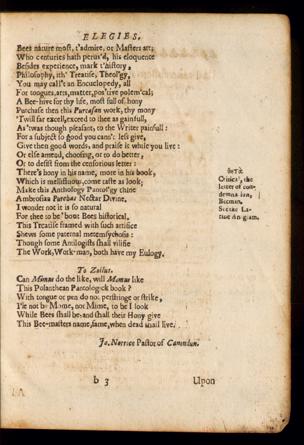 ELEGIES.
Bees nature most, t'admire, or Masters art;
Who centuries hath perus'd, his eloquence
Besides experience, mark t'history,
Philosophy, ith' Treatise, Theol'gy,
You may call't an Encuclopedy, all
For tongues, arts, matter, pos'tive polem'cal;
A Bee-hive for thy life, most full of hony
Purchase then this Purcasan work, thy mony
'Twill far excell, exceed to thee as gainfull,
As 'twas though pleasant, to the Writer painfull:
For a subject so good you cann't less give,
Give then good words, and praise it while you live:
Or else amend, choosing, or to do better,
Or to desist from the censorious letter:
There's hony in his name, more in his book,
Which is mellifluous, come taste as look;
Make this Anthology Pantol'gy thine
Ambrosian Purchas Nectar Divine.
I wonder not it is so natural
For thee to be 'bout Bees historical.
This Treatise framed with such artifice
Shews some paternal metempsychosis:
Though some Antilogists shall vilifie
The Work, Work-man, both have my Eulogy.
θῆτα
Critics', the
letter of con-
demnation,
Beeman.
To Zoilus.
Can Momus do the like, will Momus like
This Polanthean Pantologick book?
With tongue or pen do not perstringe or strike,
I'le not be Mome, not Mime, to be I look
While Bees shall be, and shall their Hony give
This Bee-masters name, fame, when dead shall live.
Jo. Nortice Pastor of
b 3
Upon